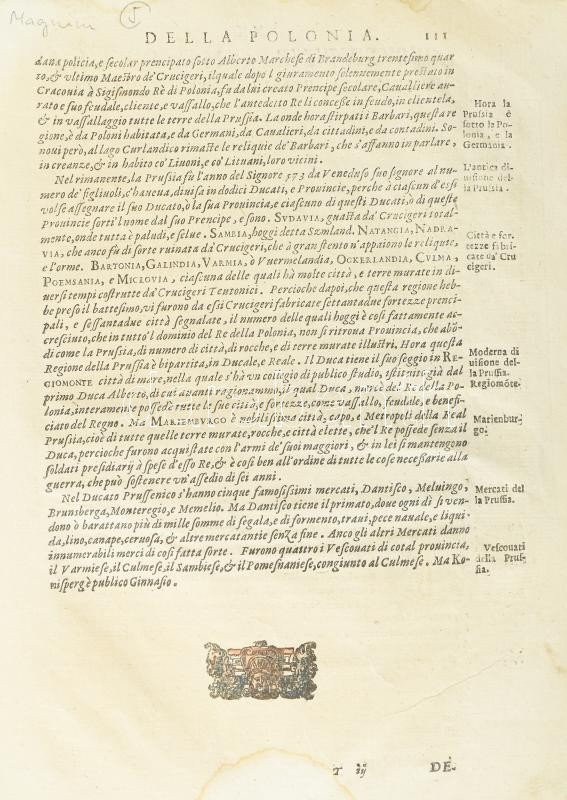 Magnini 5
DELLA POLONIA. 111
dana policia, e secolar prencipato sotto Alberto Marchese di Brandeburg trentesimo quar
to, & vltimo Maestro de' Crucigeri, ilquale dopo l giuramento solennemente prestato in
Cracouia à Sigismondo Rè di Polonia, fu da lui creato Prencipe secolare, Caualliere au-
rato e suo feudale, cliente, e vassallo, che l'antedetto Re li concesse in feudo, in clientela,
& in vassallaggio tutte le terre della Prussia. La onde hora stirpati i Barbari, questa re
gione, è da Poloni habitata, e da Germani, da Caualieri, da cittadini, e da contadini. So-
noui però, al lago Curlandico rimaste le reliquie de' Barbari, che s'affanno in parlare,
in creanze, & in habito co' Liuoni, e co' Lituani, loro vicini.
Hora la
Prussia è
sotto la Po-
lonia, e la
Germania.
Nel rimanente, la Prussia fù l'anno del Signore 573 da Veneduso suo signore al nu-
mero de' figliuoli, c'haueua, diuisa in dodici Ducati, e Prouincie, perche à ciascun d'essi
volse assegnare il suo Ducato, ò la sua Prouincia, e ciascuno di questi Ducati, ò di queste
Prouincie sortì 'l nome dal suo Prencipe, e sono. SVDAVIA, guasta da' Crucigeri total-
mente, onde tutta è paludi, e selue. SAMBIA, hoggi detta Szmland. NATANGIA, NADRA-
VIA, che anco fù di sorte ruinata da' Crucigeri, che à gran stento n'appaiono le reliquie,
e l'orme. BARTONIA, GALINDIA, VARMIA, ò Vuermelandia, OCKERLANDIA, CVLMA,
POEMSANIA, e MICLOVIA, ciascuna delle quali hà molte città, e terre murate in di-
uersi tempi costrutte da' Crucigeri Teutonici. Percioche dapoi, che questa regione heb-
be preso il battesimo, vi furono da essi Crucigeri fabricate settantadue fortezze prenci-
pali, e sessantadue città segnalate, il numero delle quali hoggi è così fattamente ac-
cresciuto, che in tutto 'l dominio del Re della Polonia, non si ritroua Prouincia, che abõ-
di come la Prussia, di numero di città, di rocche, e di terre murate illustri. Hora questa
Regione della Prussia è bipartita, in Ducale, e Reale. Il Duca tiene il suo seggio in RE-
GIOMONTE città di mare, nella quale s'hà vn collegio di publico studio, istituito già dal
primo Duca Alberto, di cui auanti ragionammo, il qual Duca, mercè del Re della Po-
lonia, interamente possede tutte le sue città, e fortezze, come vassallo, feudale, e benefi-
ciato del Regno. Ma MARIEMBVRGO è nobilissima città, capo, e Metropoli della Real
Prussia, cioè di tutte quelle terre murate, rocche, e città elette, che'l Re possede senza il
Duca, percioche furono acquistate con l'armi de' suoi maggiori, & in lei si mantengono
soldati presidiarij à spese d'esso Re, & è così ben all'ordine di tutte le cose necessarie alla
guerra, che può sostenere vn'assedio di sei anni.
L'antica di-
uisione del-
la Prussia.
Città e for-
tezze fabri-
cate da' Cru
cigeri.
Moderna di
uisione del-
la Prussia.
Regiomõte.
Marienbur
go.
Nel Ducato Prussenico s'hanno cinque famosissimi mercati, Dantisco, Meluingo,
Brunsberga, Monteregio, e Memelio. Ma Dantisco tiene il primato, doue ogni dì si ven-
dono ò barattano più di mille somme di segala, e di formento, traui, pece nauale, e liqui-
da, lino, canape, ceruosa, & altre mercatantie senza fine. Anco gli altri Mercati danno
innumerabili merci di cosi fatta sorte. Furono quattro i Vescouati di cotal prouincia,
il Varmiese, il Culmese, il Sambiese, & il Pomesaniese, congiunto al Culmese. Ma Ko-
nisperg è publico Ginnasio.
Mercati del
la Prussia.
Vescouati
della Prus-
sia.
T iij DE-